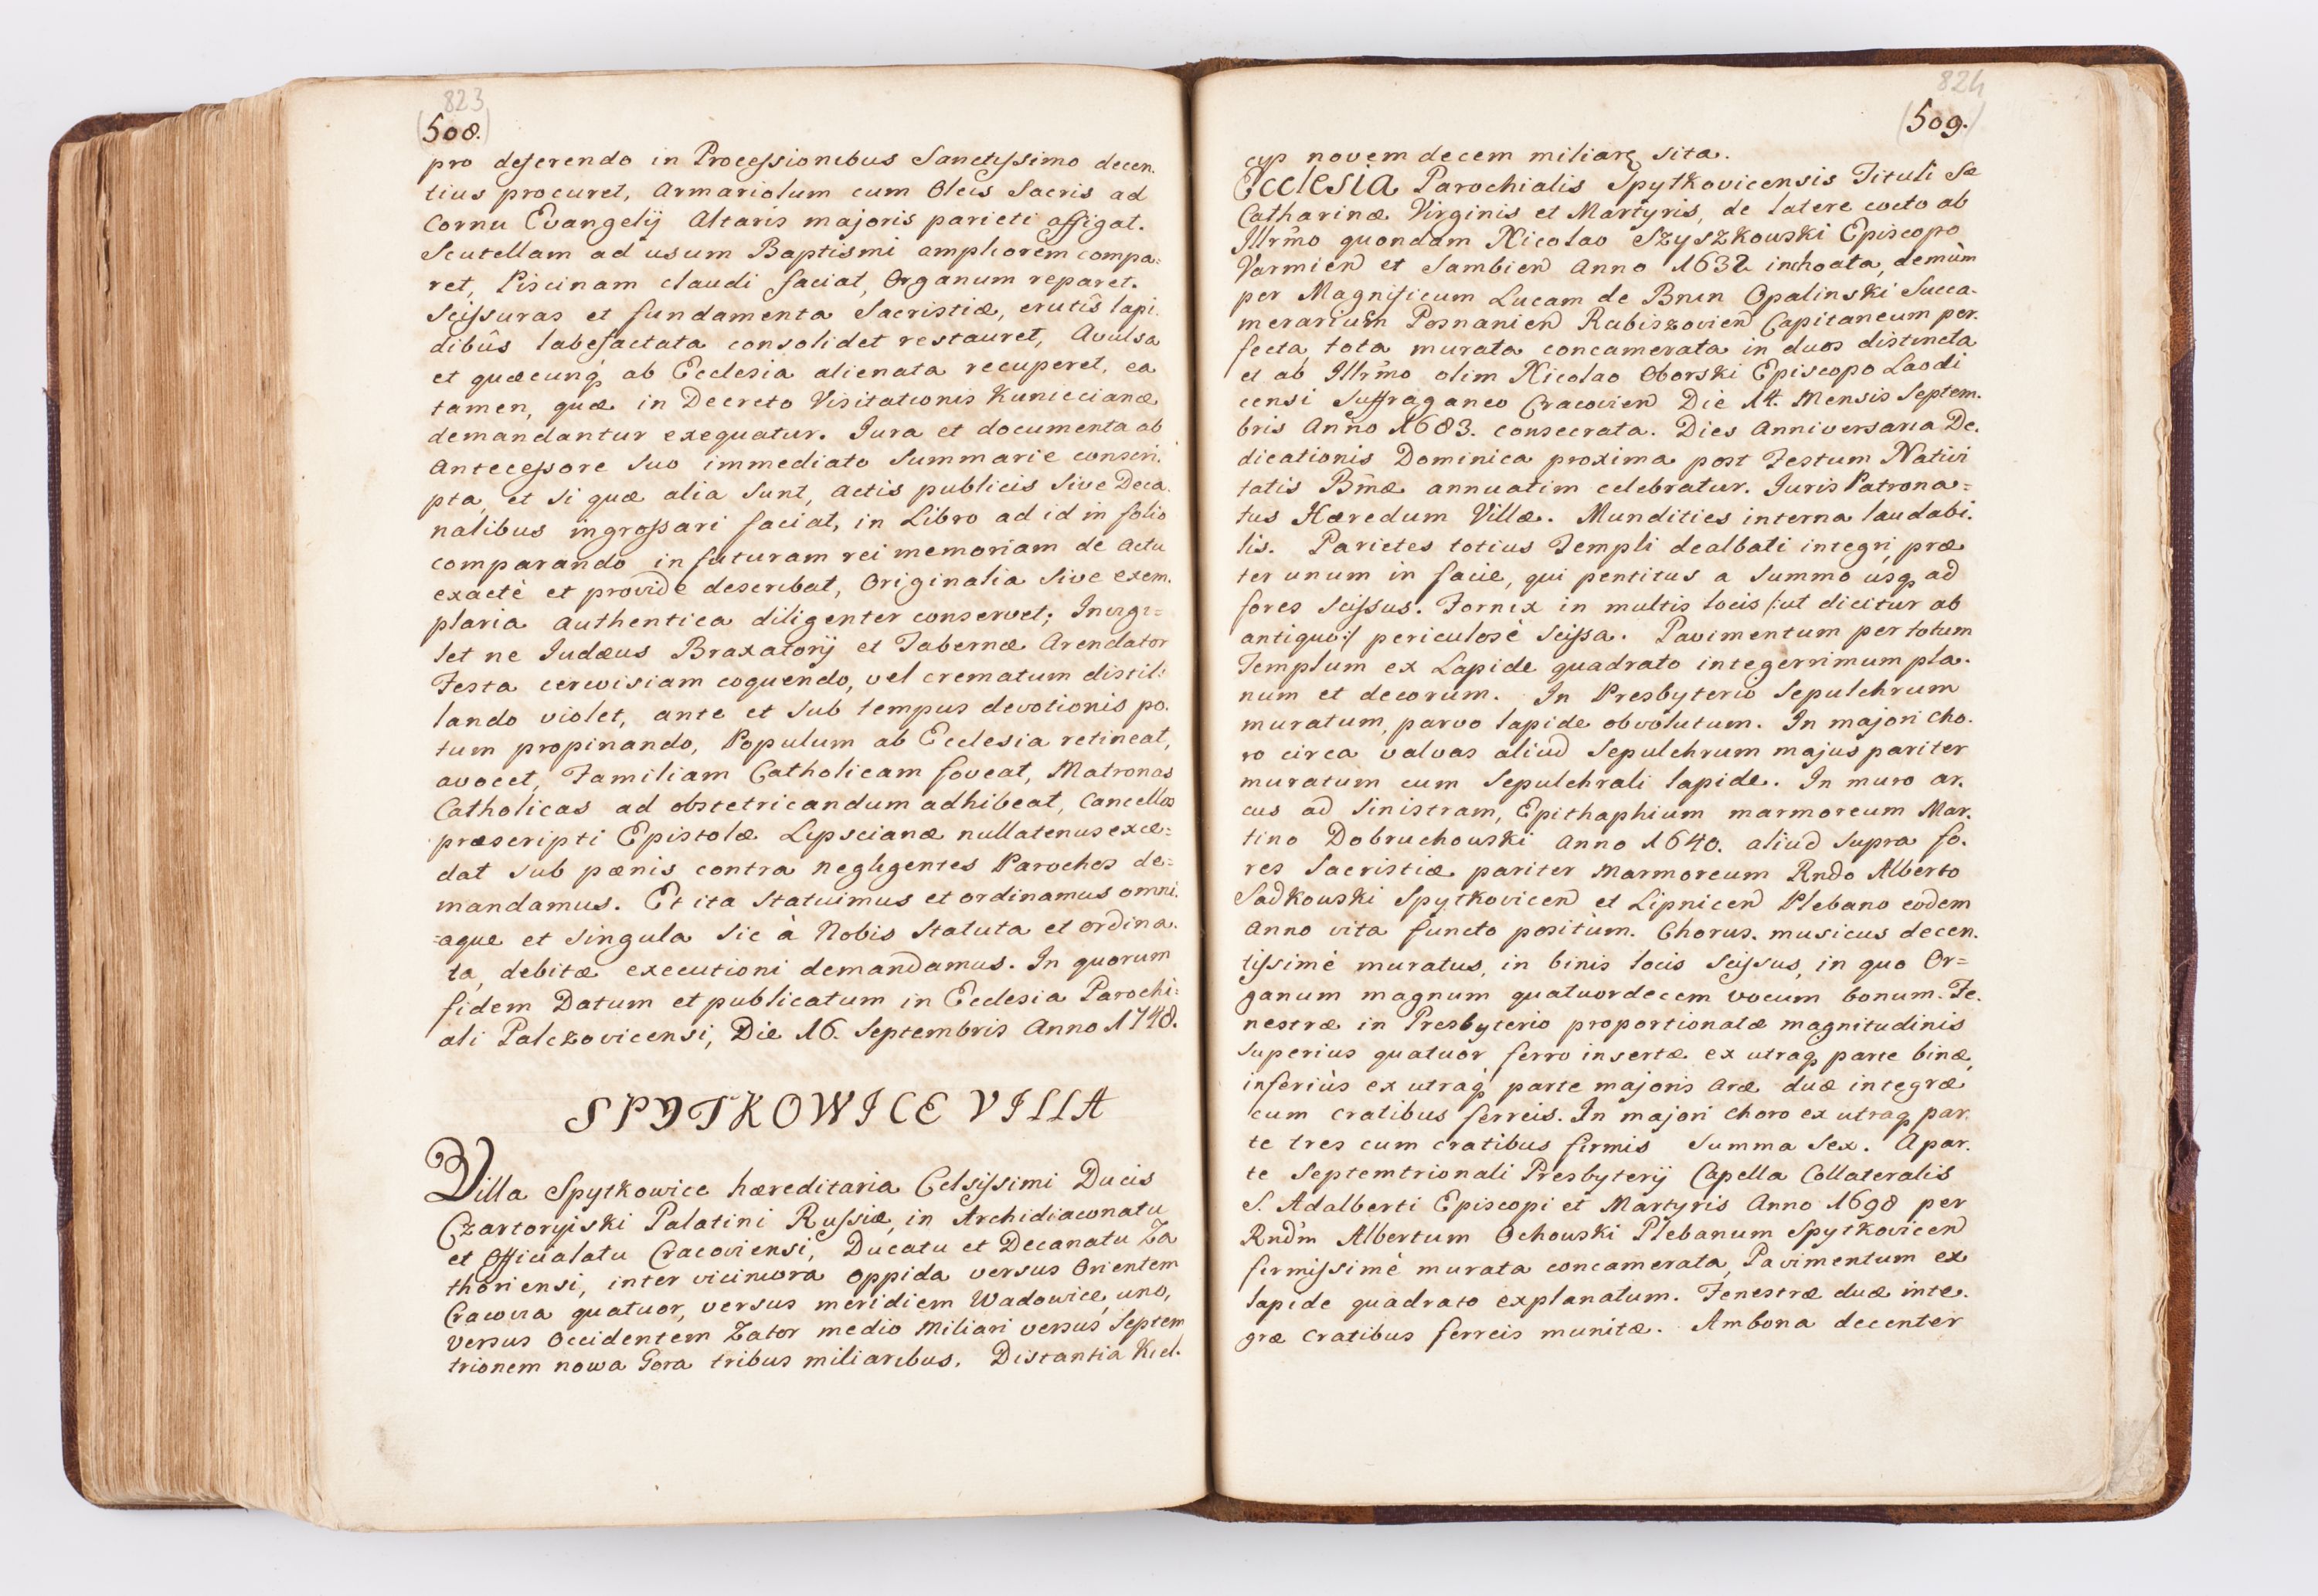 823
(508.)
pro deferendo in Processionibus Sanctissimo decen.
tius procuret, Armariolum cum Oleis Sacris ad
Cornu Evangelij Altaris majoris parieti affigat.
Scutellam ad usum Baptismi ampliorem compa=
ret, Piscinam claudi faciat, Organum reparet.
Scissuras et fundamenta Sacristiæ, erutis lapi.
dibûs labefactata consolidet restauret, Avulsa
et quæcunq₃ ab Ecclesia alienata recuperet, ea
tamen, quæ in Decreto Visitationis Kunicianæ
demandantur exequatur. Jura et documenta ab
Antecessore suo immediato Summarie conscri.
pta, et si quæ alia sunt, Actis publicis sive Deca.
nalibus ingrossari faciat, in Libro ad id in folio
comparando in futuram rei memoriam de Actu
exactè et providè describat, Originalia sive exem.
plaria authentica diligenter conservet; Invigi=
let ne Judæus Braxatorij et Tabernæ Arendator
Festa cervisiam coquendo, vel crematum distil=
lando violet, ante et sub tempus devotionis po.
tum propinando, Populum ab Ecclesia retineat,
avocet, Familiam Catholicam foveat, Matronas
Catholicas ad obstetricandum adhibeat, Cancellos
præscripti Epistolæ Lipscianæ nullatenus exce=
dat sub pœnis contra negligentes Parochos de=
mandamus. Et ita statuimus et ordinamus omni.
=aque et singula sic à Nobis statuta et ordina.
ta, debitæ executioni demandamus. In quorum
fidem Datum et publicatum in Ecclesia Parochi=
ali Palczovicensi, Die 16. Septembris Anno 1748.
SPYTKOWICE VILLA
Villa Spytkowice hæreditaria Celsissimi Ducis
Czartoryiski Palatini Russiæ, in Archidiaconatu
et Officialatu Cracoviensi, Ducatu et Decanatu Za
thoriensi, inter viciniora oppida versus Orientem
Cracovia quatuor, versus meridiem Wadowice uno,
versus Occidentem Zator medio Miliari versus Septem
trionem nowa Gora tribus miliaribus. Distantia Kiel.
824
(509.)
cys novem decem miliarẽ sita.
Ecclesia Parochialis Spytkovicensis Tituli Sæ
Catharinæ Virginis et Martyris, de latere cocto ab
Illrm̃o quondam Nicolao Szyszkowski Episcopo
Varmien̄ et Sambien̄ Anno 1632 inchoata, demùm
per Magnificum Lucam de Bnin Opalinski Succa-
merarium Posnanien̄ Rabiszovien̄ Capitaneum per.
fecta, tota murata concamerata in duos distincta
et ab Illrm̃o olim Nicolao Oborski Episcopo Laodi
censi Suffraganeo Cracovien̄ Die 14. Mensis Septem.
bris Anno 1683. consecrata. Dies Anniversaria De.
dicationis Dominica proxima post Festum Nativi
tatis Bm̃æ annuatim celebratur. Juris Patrona=
tus Hæredum Villæ. Mundities interna laudabi.
lis. Parietes totius Templi dealbati integri, præ
ter unum in facie, qui pentitus a summo úsq₃ ad
fores scissus. Fornix in multis locis /:ut dicitur ab
antiquo:/ periculosè scissa. Pavimentum per totum
Templum ex Lapide quadrato integerrimum pla.
num et decorum. In Presbyterio Sepulchrum
muratum, parvo lapide obvolutum. In majori Cho.
ro circa valvas aliud Sepulchrum majus pariter
muratum cum Sepulchrali lapide. In muro ar.
cus ad sinistram, Epithaphium marmoreum Mar.
tino Dobruchowski Anno 1640. aliud supra fo.
res Sacristiæ pariter Marmoreum Rndo Alberto
Sadkowski Spytkovicen̄ et Lipnicen̄ Plebano eodem
Anno vita functo positum. Chorus. musicus decen.
tissimè muratus, in binis locis scissus, in quo Or=
ganum magnum quatuordecem vocum bonum. Fe.
nestræ in Presbyterio proportionatæ magnitudinis
superius quatuor ferro insertæ ex utraq₃ parte binæ,
inferiùs ex utraq₃ parte majoris aræ duæ integræ
cum cratibus ferreis. In majori choro ex utraq₃ par.
te tres cum cratibus firmis summa sex. A par.
te Septemtrionali Presbyterij Capella Collateralis
S. Adalberti Episcopi et Martyris Anno 1698 per
Rndm̃ Albertum Ochowski Plebanum Spytkovicen̄
firmissimè murata concamerata, Pavimentum ex
lapide quadrato explanatum. Fenestræ duæ inte.
græ cratibus ferreis munitæ. Ambona decenter